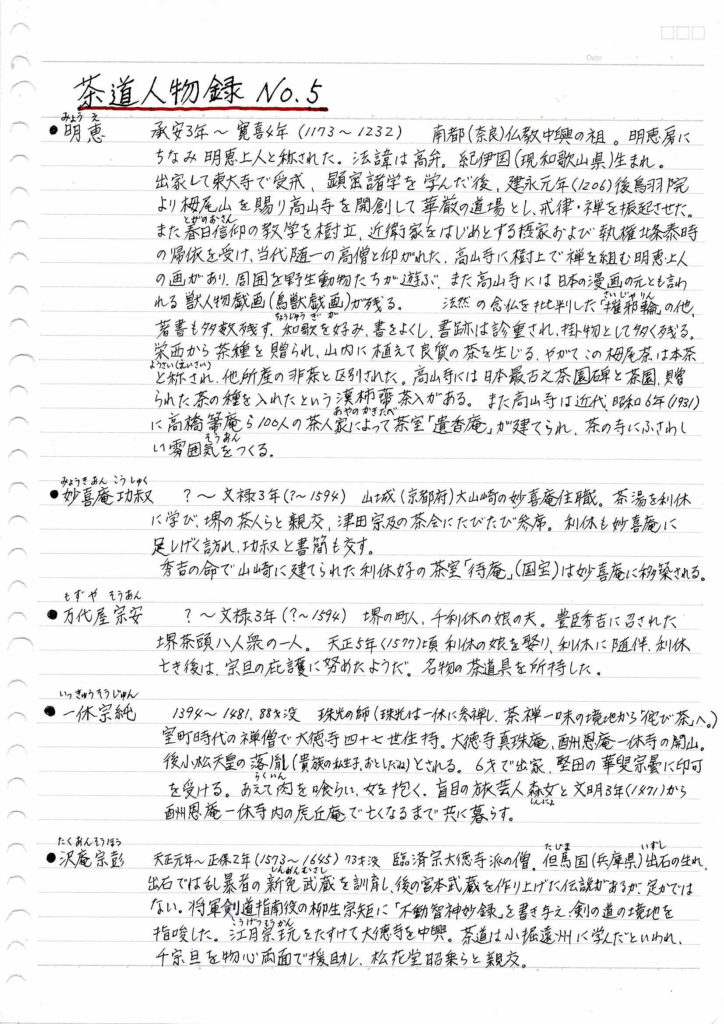 Date
茶道人物録 No.5
みょう え
●明恵 承安3年〜寛喜4年(1173〜1232) 南都(奈良)仏教中興の祖。明恵房に
ちなみ明恵上人と称された。法諱は高弁。紀伊国(現和歌山県)生まれ。
出家して東大寺で受戒、顕密諸学を学んだ後、建永元年(1206)後鳥羽院
より栂尾山を賜り高山寺を開創して華厳の道場とし、戒律・禅を振起させた。
とがのおさん
また春日信仰の教学を樹立、近衛家をはじめとする摂家および執権北条泰時
の帰依を受け、当代随一の高僧と仰がれた。高山寺に樹上で禅を組む明恵上人
の画があり、周囲を野生動物たちが遊ぶ。また高山寺には日本の漫画の元とも言わ
れる獣人物戯画(鳥獣戯画)が残る。 法然の念仏を批判した「摧邪輪」の他、
ちょうじゅうぎが さいじゃりん
著書も多数残す。和歌を好み、書をよくし、書跡は珍重され、掛物として多く残る。
栄西から茶種を贈られ、山内に植えて良質の茶を生じる。やがてこの栂尾茶は本茶
ようさい(えいさい)
と称され、他所産の非茶と区別された。高山寺には日本最古之茶園碑と茶園、贈
られた茶の種を入れたという漢柿蔕茶入がある。また高山寺は近代、昭和6年(1931)
あやのかきたべ
に高橋箒庵ら100人の茶人家によって茶室「遺香庵」が建てられ、茶の寺にふさわし
そうあん
い雰囲気をつくる。
みょうきあん こうしゅく
●妙喜庵功叔 ?〜文禄3年(?〜1594) 山城(京都府)大山崎の妙喜庵住職。茶湯を利休
に学び、堺の茶人らと親交、津田宗及の茶会にたびたび参席。利休も妙喜庵に
足しげく訪れ、功叔と書簡も交す。
秀吉の命で山崎に建てられた利休好の茶室「待庵」(国宝)は妙喜庵に移築される。
もずや そうあん
●万代屋宗安 ?〜文禄3年(?〜1594) 堺の町人、千利休の娘の夫。豊臣秀吉に召された
堺茶頭八人衆の一人。天正5年(1577)頃利休の娘を娶り、利休に随伴、利休
亡き後は、宗旦の庇護に努めたようだ。名物の茶道具を所持した。
いっきゅうそうじゅん
●一休宗純 1394〜1481、88才没 珠光の師(珠光は一休に参禅し、茶禅一味の境地から「侘び茶」へ。)
室町時代の禅僧で大徳寺四十七世住持。大徳寺真珠庵、酬恩庵一休寺の開山。
後小松天皇の落胤(貴族の私生子、おとしだね)とされる。6才で出家、堅田の華叟宗曇に印可
らくいん
を受ける。あえて肉を喰らい、女を抱く。盲目の旅芸人森女と文明3年(1471)から
しんにょ
酬恩庵一休寺内の虎丘庵で亡くなるまで共に暮らす。
たくあんそうほう
●沢庵宗彭 天正元年〜正保2年(1573〜1645)73才没 臨済宗大徳寺派の僧。但馬国(兵庫県)出石の生れ。
たじま いずし
出石では乱暴者の新免武蔵を訓育し、後の宮本武蔵を作り上げた伝説があるが、定かでは
しんめんむさし
ない。将軍剣道指南役の柳生宗矩に「不動智神妙録」を書き与え、剣の道の境地を
指唆した。江月宗玩をたすけて大徳寺を中興。茶道は小掘遠州に学んだといわれ、
こうげつそうがん
千宗旦を物心両面で援助し、松花堂昭乗らと親交。